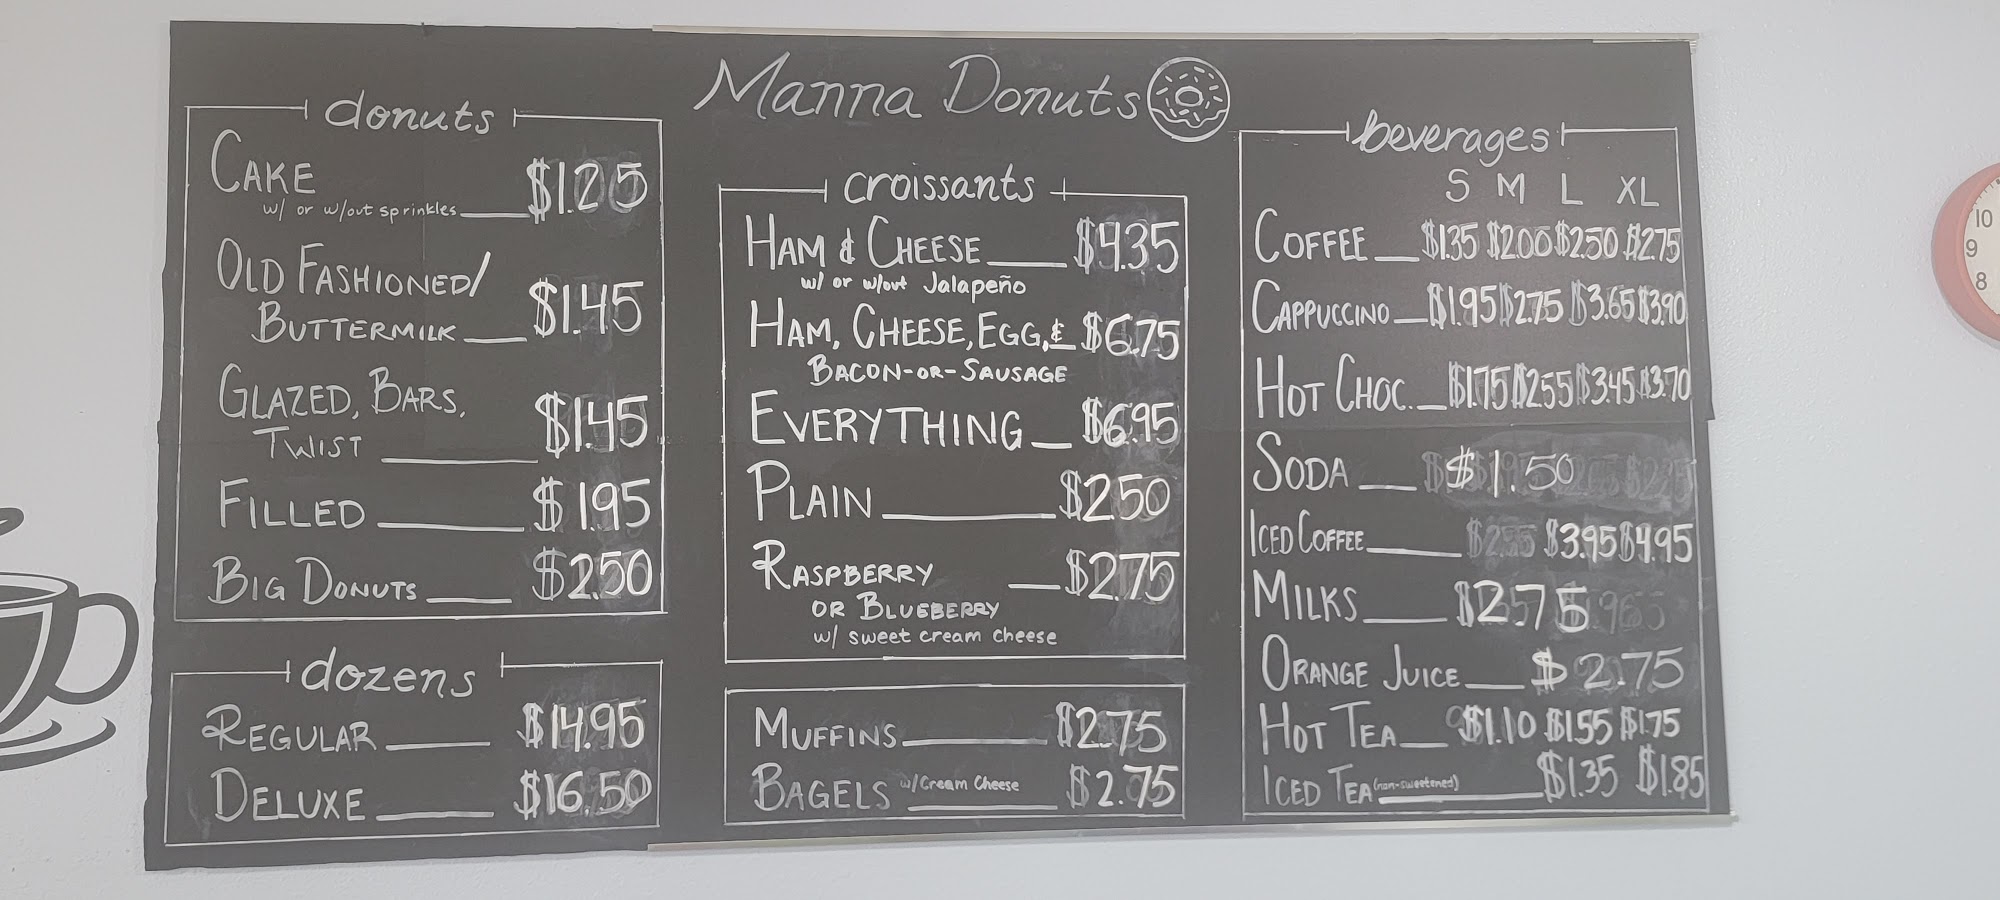 Manna Donuts
donuts
CAKE
w/ or w/out sprinkles $1.25
OLD FASHIONED/
BUTTERMILK $1.45
GLAZED, BARS,
TWIST $1.45
FILLED $1.95
BIG DONUTS $2.50
dozens
REGULAR $14.95
DELUXE $16.50
croissants
HAM & CHEESE $4.35
w/ or w/out Jalapeño
HAM, CHEESE, EGG, & $6.75
BACON-OR-SAUSAGE
EVERYTHING $6.95
PLAIN $2.50
RASPBERRY $2.75
OR BLUEBERRY
w/ sweet cream cheese
MUFFINS $2.75
BAGELS w/Cream Cheese $2.75
beverages
S M L XL
COFFEE $1.35 $2.00 $2.50 $2.75
CAPPUCCINO $1.95 $2.75 $3.65 $3.90
HOT CHOC. $1.75 $2.55 $3.45 $3.70
SODA $1.50
ICED COFFEE $3.95 $4.95
MILKS $2.75
ORANGE JUICE $2.75
HOT TEA $1.10 $1.55 $1.75
ICED TEA (non-sweetened) $1.35 $1.85
10
9
8